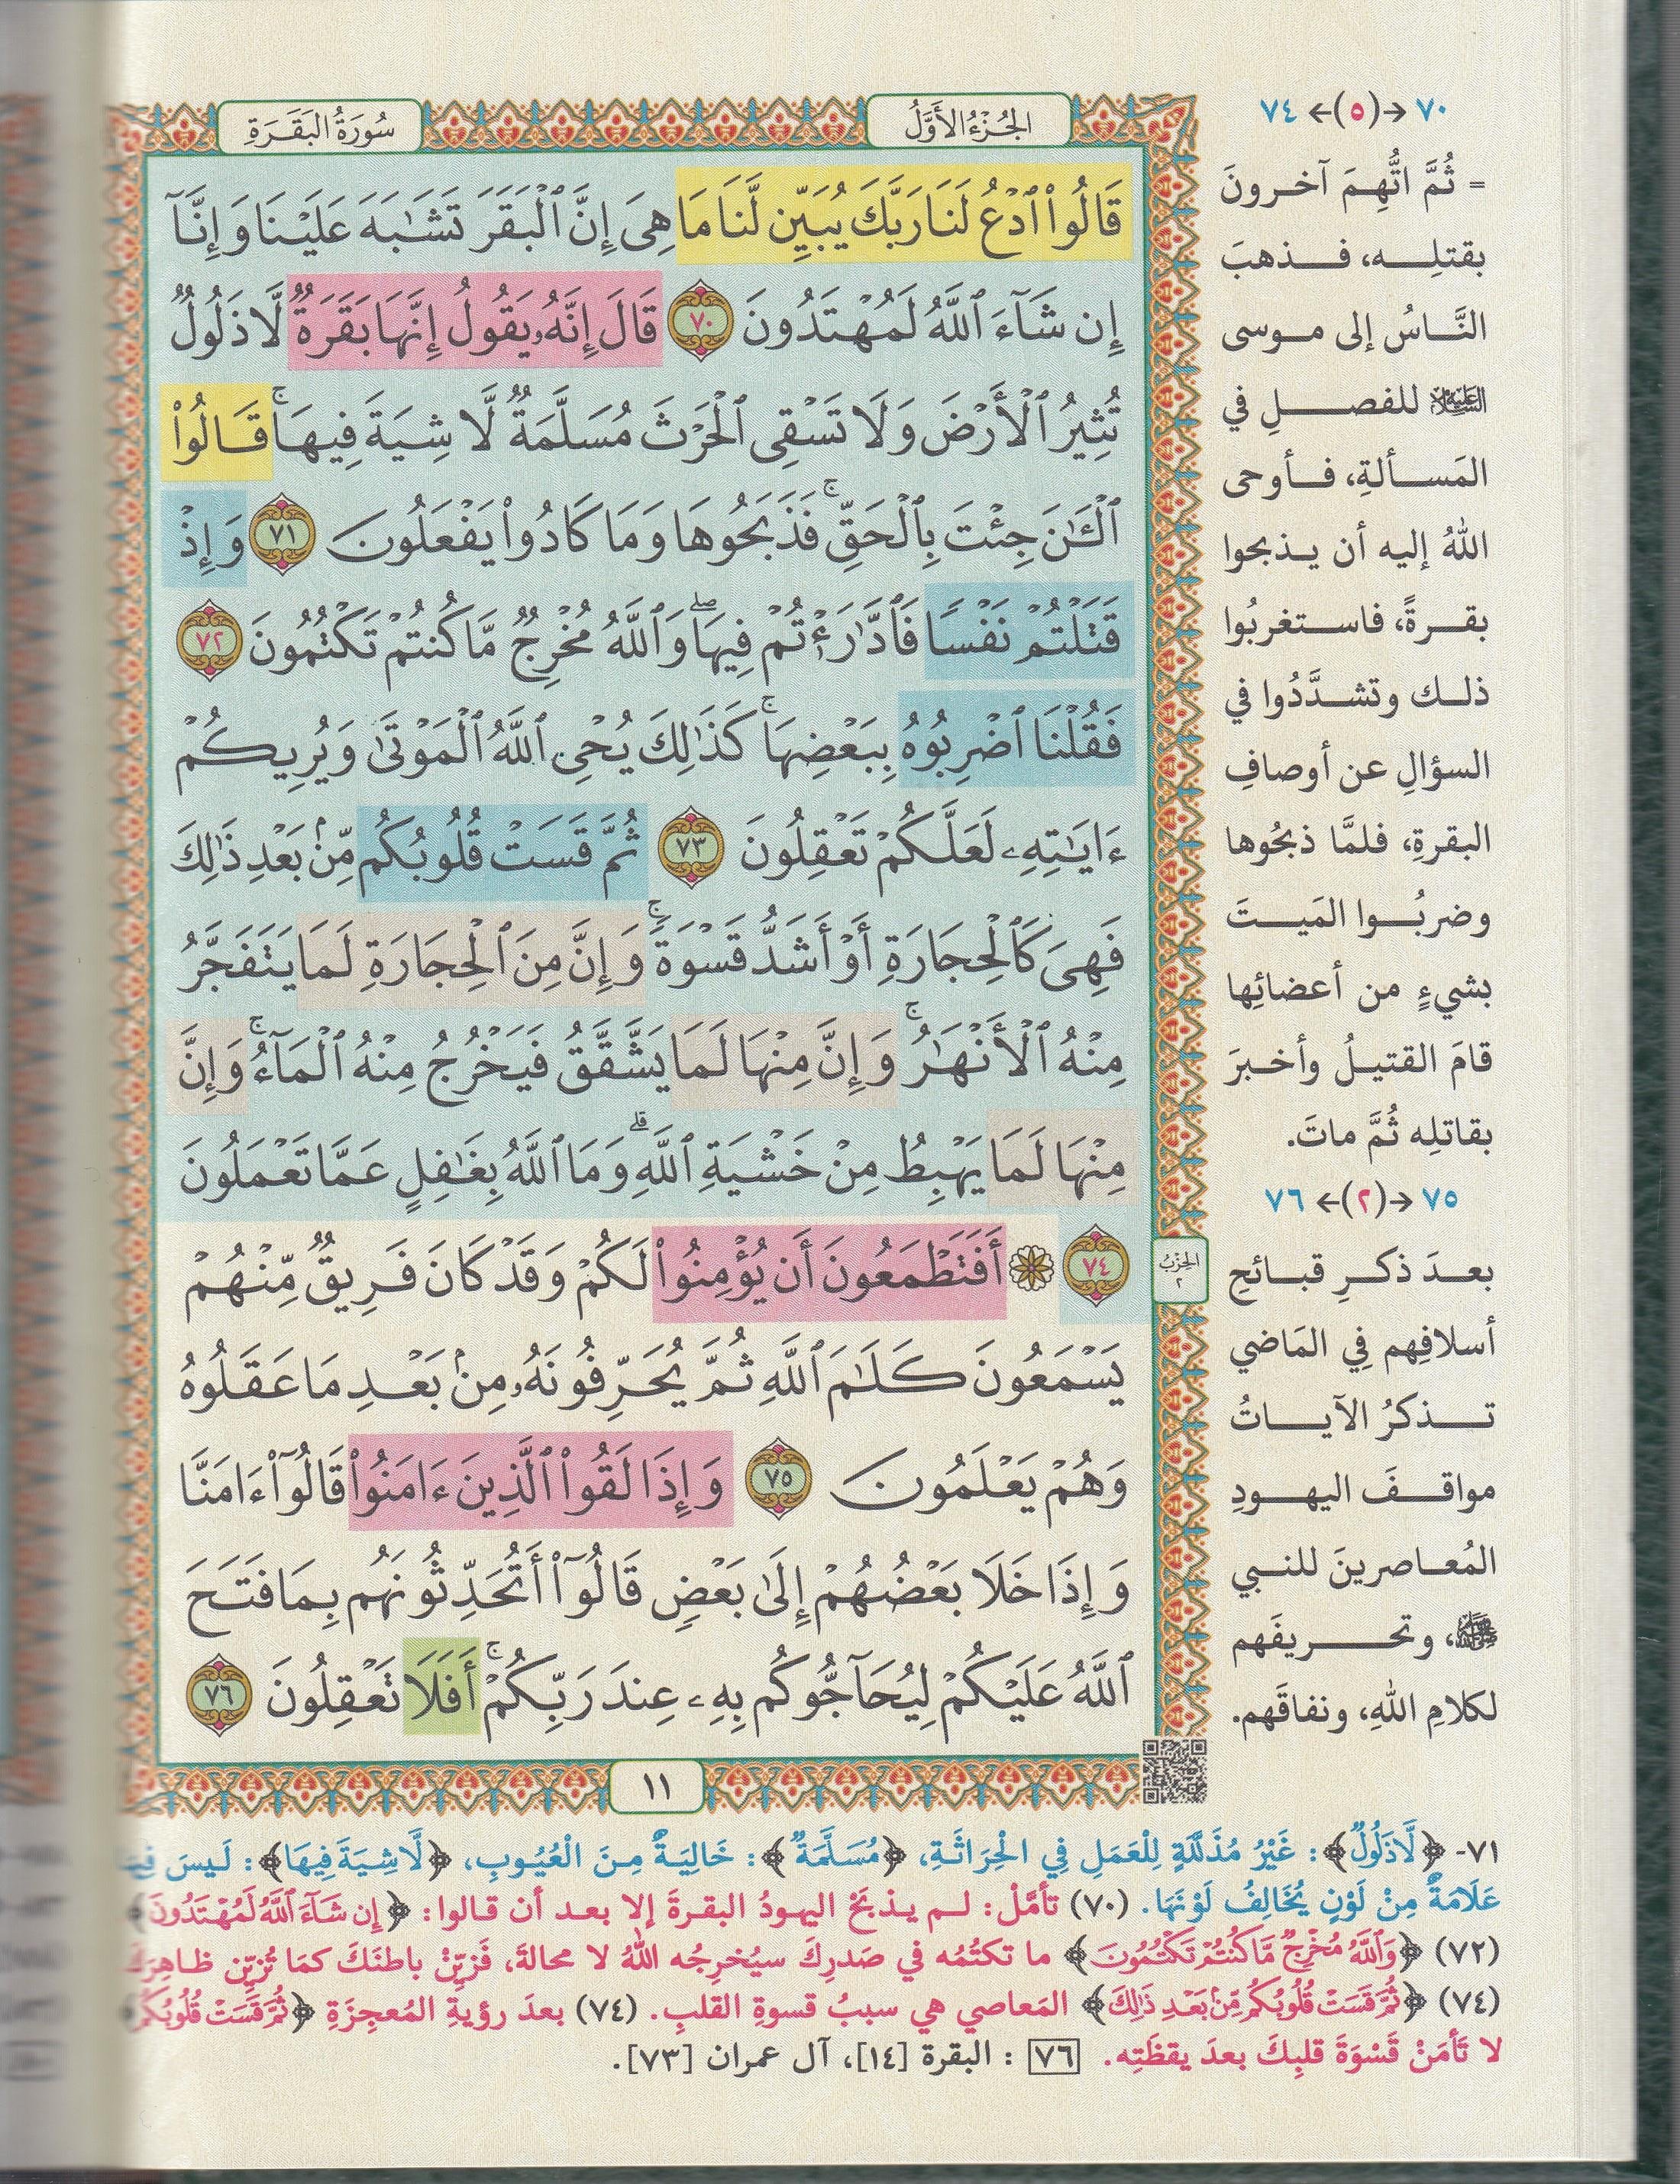 الجُزْءُ الأَوَّلُ
سُورَةُ البَقَرَةِ
قَالُوا۟ ٱدْعُ لَنَا رَبَّكَ يُبَيِّن لَّنَا مَا هِىَ إِنَّ ٱلْبَقَرَ تَشَـٰبَهَ عَلَيْنَا وَإِنَّآ
إِن شَآءَ ٱللَّهُ لَمُهْتَدُونَ ٧٠ قَالَ إِنَّهُۥ يَقُولُ إِنَّهَا بَقَرَةٌ لَّا ذَلُولٌ
تُثِيرُ ٱلْأَرْضَ وَلَا تَسْقِى ٱلْحَرْثَ مُسَلَّمَةٌ لَّا شِيَةَ فِيهَا ۚ قَالُوا۟
ٱلْـَٔـٰنَ جِئْتَ بِٱلْحَقِّ ۚ فَذَبَحُوهَا وَمَا كَادُوا۟ يَفْعَلُونَ ٧١ وَإِذْ
قَتَلْتُمْ نَفْسًا فَٱدَّٰرَْٰٔتُمْ فِيهَا ۖ وَٱللَّهُ مُخْرِجٌ مَّا كُنتُمْ تَكْتُمُونَ ٧٢
فَقُلْنَا ٱضْرِبُوهُ بِبَعْضِهَا ۚ كَذَٰلِكَ يُحْىِ ٱللَّهُ ٱلْمَوْتَىٰ وَيُرِيكُمْ
ءَايَـٰتِهِۦ لَعَلَّكُمْ تَعْقِلُونَ ٧٣ ثُمَّ قَسَتْ قُلُوبُكُم مِّنۢ بَعْدِ ذَٰلِكَ
فَهِىَ كَٱلْحِجَارَةِ أَوْ أَشَدُّ قَسْوَةً ۚ وَإِنَّ مِنَ ٱلْحِجَارَةِ لَمَا يَتَفَجَّرُ
مِنْهُ ٱلْأَنْهَـٰرُ ۚ وَإِنَّ مِنْهَا لَمَا يَشَّقَّقُ فَيَخْرُجُ مِنْهُ ٱلْمَآءُ ۚ وَإِنَّ
مِنْهَا لَمَا يَهْبِطُ مِنْ خَشْيَةِ ٱللَّهِ ۗ وَمَا ٱللَّهُ بِغَـٰفِلٍ عَمَّا تَعْمَلُونَ
٧٤ ۞ أَفَتَطْمَعُونَ أَن يُؤْمِنُوا۟ لَكُمْ وَقَدْ كَانَ فَرِيقٌ مِّنْهُمْ
يَسْمَعُونَ كَلَـٰمَ ٱللَّهِ ثُمَّ يُحَرِّفُونَهُۥ مِنۢ بَعْدِ مَا عَقَلُوهُ
وَهُمْ يَعْلَمُونَ ٧٥ وَإِذَا لَقُوا۟ ٱلَّذِينَ ءَامَنُوا۟ قَالُوٓا۟ ءَامَنَّا
وَإِذَا خَلَا بَعْضُهُمْ إِلَىٰ بَعْضٍ قَالُوٓا۟ أَتُحَدِّثُونَهُم بِمَا فَتَحَ
ٱللَّهُ عَلَيْكُمْ لِيُحَآجُّوكُم بِهِۦ عِندَ رَبِّكُمْ ۚ أَفَلَا تَعْقِلُونَ ٧٦
١١
٧٠ →(٥)← ٧٤
= ثُمَّ اتُّهِمَ آخرونَ
بقتلِه، فذهبَ
النَّاسُ إلى موسى
عليه السلام للفصلِ في
المَسألةِ، فأوحى
اللهُ إليه أن يذبحوا
بقرةً، فاستغربُوا
ذلك وتشدَّدُوا في
السؤالِ عن أوصافِ
البقرةِ، فلمَّا ذبحُوها
وضربُوا المَيتَ
بشيءٍ من أعضائِها
قامَ القتيلُ وأخبرَ
بقاتلِه ثُمَّ ماتَ.
٧٥ →(٢)← ٧٦
بعدَ ذكرِ قبائحِ
أسلافِهم فِي المَاضي
تذكرُ الآياتُ
مواقفَ اليهودِ
المُعاصرينَ للنبي
ﷺ، وتحريفَهم
لكلامِ اللهِ، ونفاقَهم.
الحِزْبُ
٢
٧١- ﴿لَّا ذَلُولٌ﴾: غَيْرُ مُذَلَّلَةٍ لِلْعَمَلِ فِي الْحِرَاثَةِ، ﴿مُسَلَّمَةٌ﴾: خَالِيَةٌ مِنَ الْعُيُوبِ، ﴿لَّا شِيَةَ فِيهَا﴾: لَيسَ
عَلَامَةٌ مِنْ لَوْنٍ يُخَالِفُ لَوْنَهَا. (٧٠) تأمَّلْ: لم يذبَحْ اليهودُ البقرةَ إلا بعد أن قالوا: ﴿إِن شَآءَ ٱللَّهُ لَمُهْتَدُونَ﴾
(٧٢) ﴿وَٱللَّهُ مُخْرِجٌ مَّا كُنتُمْ تَكْتُمُونَ﴾ ما تكتُمُه في صَدرِكَ سيُخرِجُه اللهُ لا محالةَ، فَزيِّنْ باطنَكَ كمَا تُزيِّن ظاهِرَكَ
(٧٤) ﴿ثُمَّ قَسَتْ قُلُوبُكُم مِّنۢ بَعْدِ ذَٰلِكَ﴾ المَعاصي هي سببُ قسوةِ القلبِ. (٧٤) بعدَ رؤيةِ المُعجِزَةِ ﴿ثُمَّ قَسَتْ قُلُوبُكُم
لا تَأمَنْ قَسْوَةَ قلبِكَ بعدَ يقظَتِه. ٧٦: البقرة [١٤]، آل عمران [٧٣].